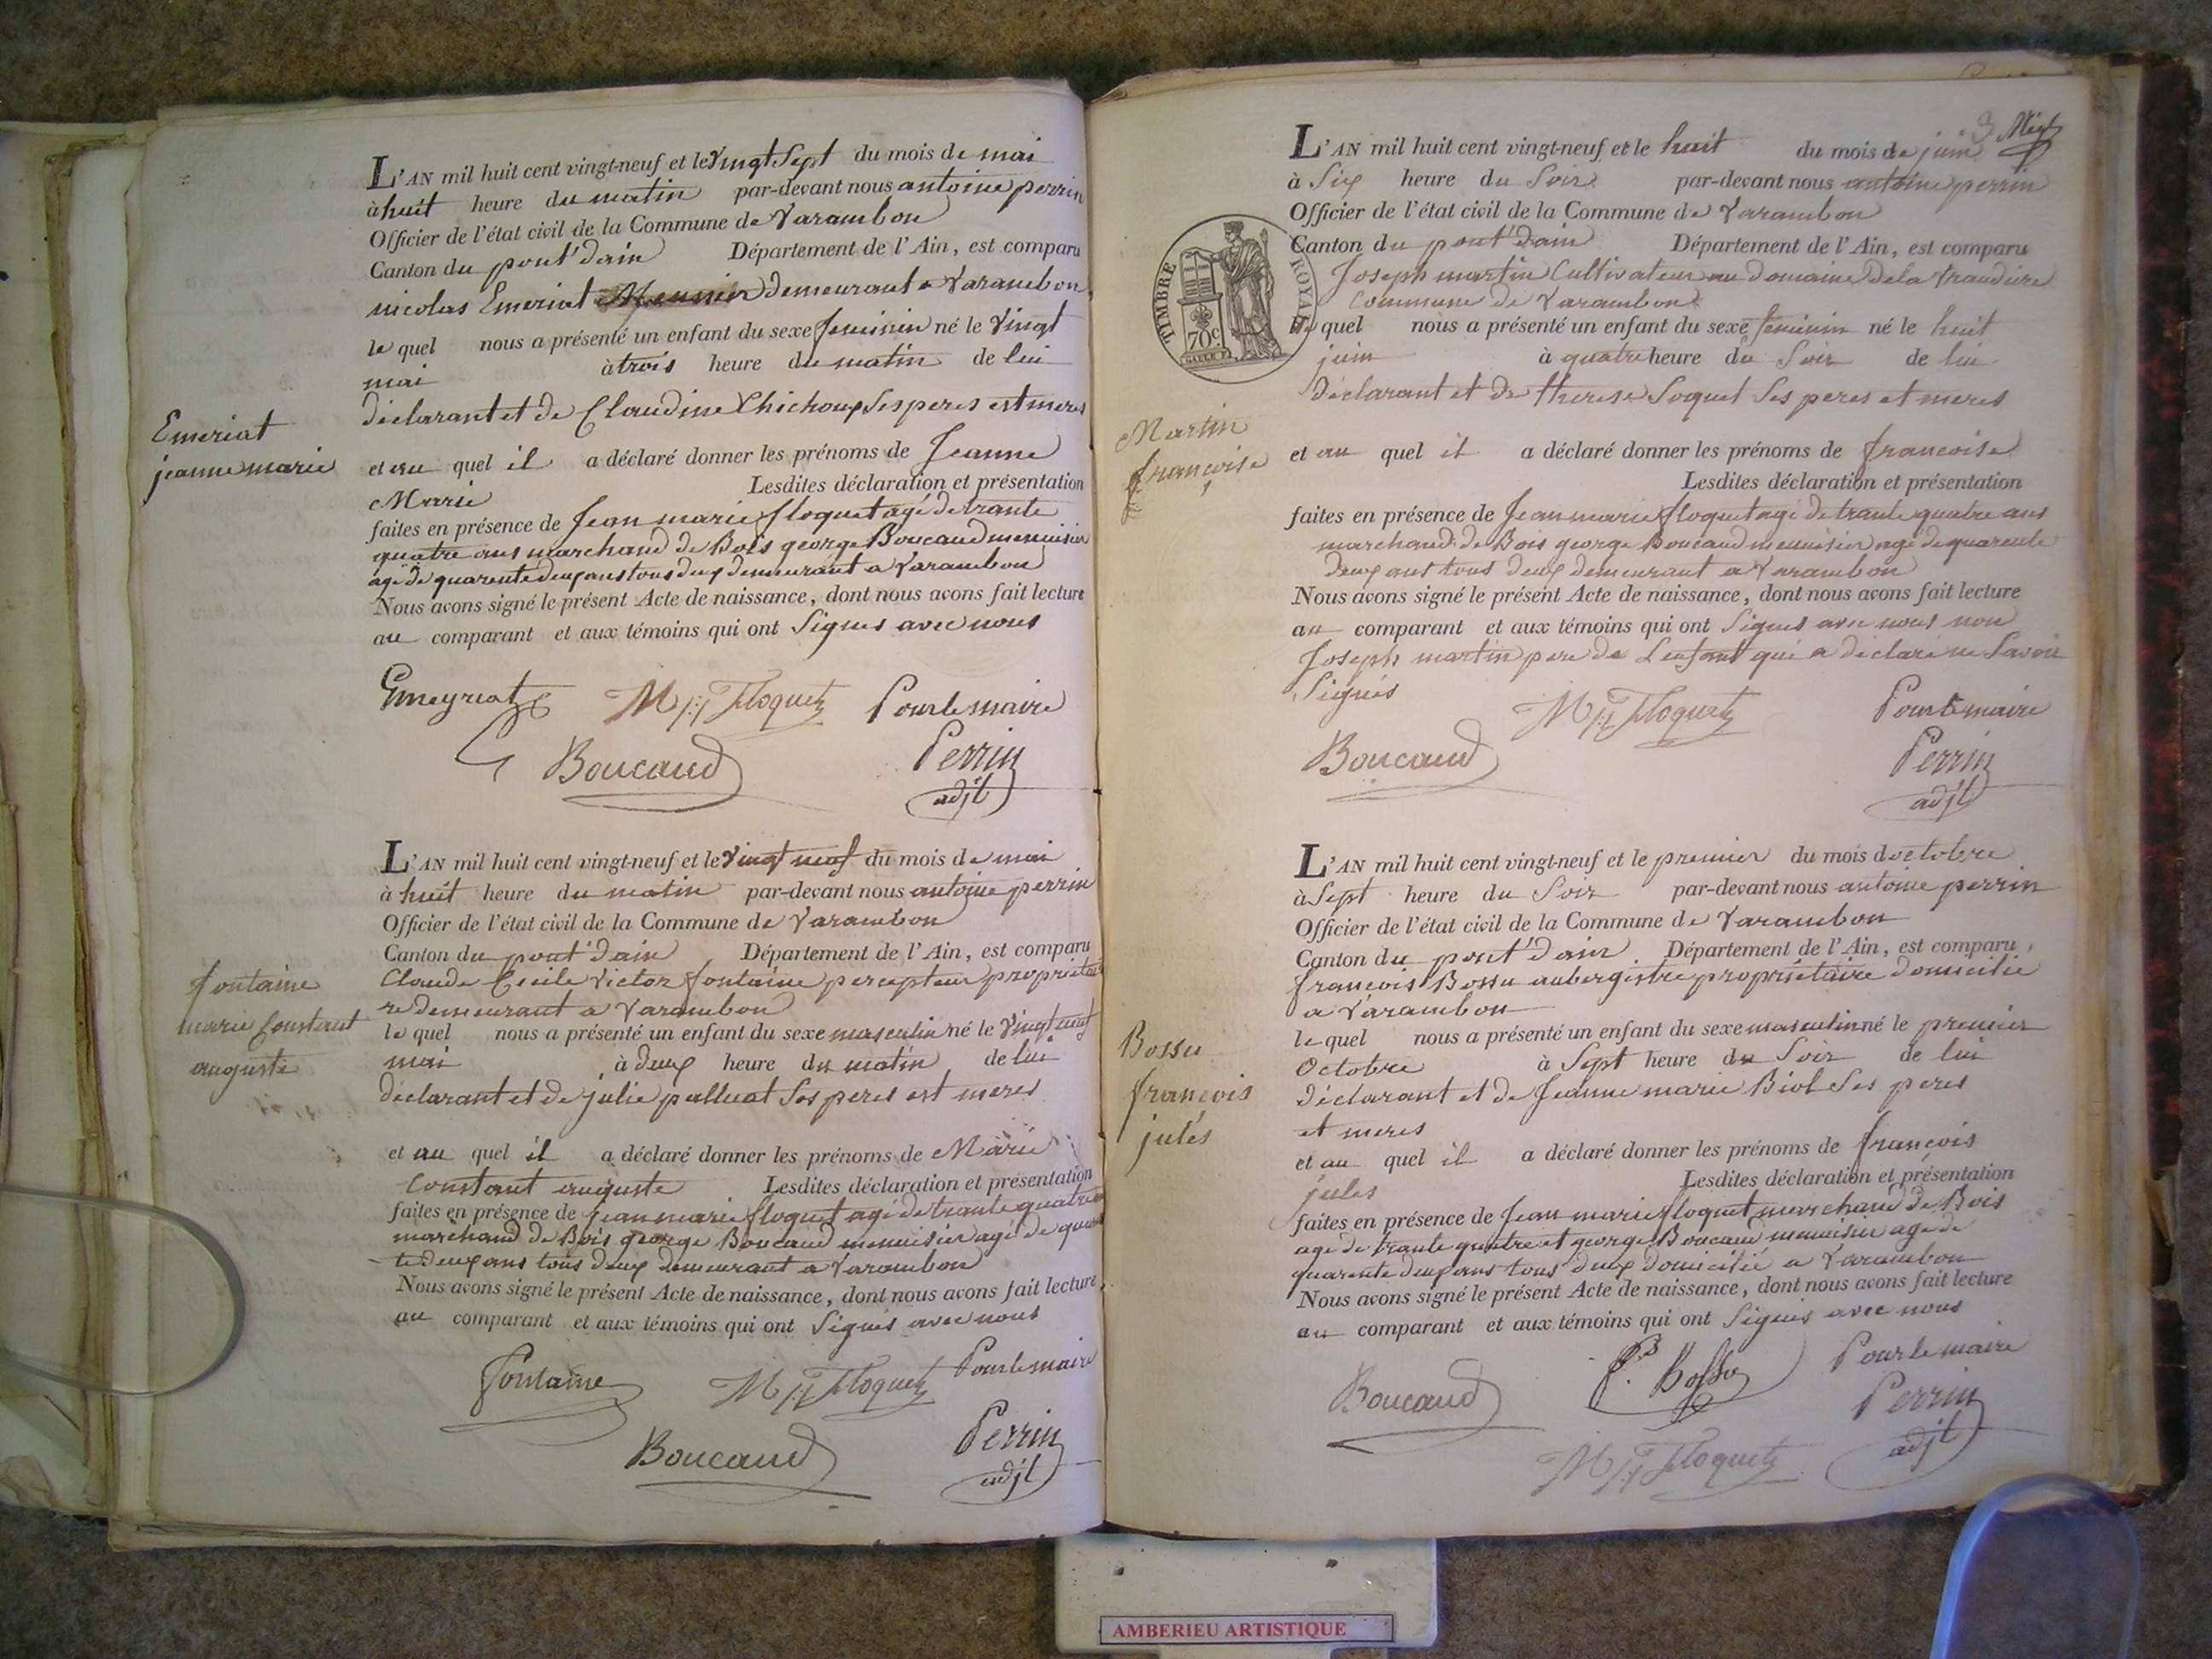 L'AN mil huit cent vingt-neuf et le Vingt Sept du mois de mai
à huit heure du matin par-devant nous antoine perrin
Officier de l'état civil de la Commune de Varambon
Canton du pont d'ain Département de l'Ain, est comparu
nicolas Emeriat demeurant a Varambon
le quel nous a présenté un enfant du sexe feminin né le Vingt
mai à trois heure du matin de lui
déclarant et de Claudine Chichoux ses peres est meres
Emeriat
jeanne marie
et au quel il a déclaré donner les prénoms de Jeanne
Marie Lesdites déclaration et présentation
faites en présence de Jean marie floquet agé de trante
quatre ans marchand de Bois george Boucaud menuisier
agé de quarente deux ans tous deux demeurant a Varambon
Nous avons signé le présent Acte de naissance, dont nous avons fait lecture
au comparant et aux témoins qui ont Signés avec nous
Emeyriat M Floquet Pour le maire
Boucaud Perrin
adjt
L'AN mil huit cent vingt-neuf et le Vingt neuf du mois de mai
à huit heure du matin par-devant nous antoine perrin
Officier de l'état civil de la Commune de Varambon
Canton du pont d'ain Département de l'Ain, est comparu
Claude Cecile Victor fontaine percepteur propriétai
re demeurant a Varambon
fontaine
marie Constant
auguste
le quel nous a présenté un enfant du sexe masculin né le Vingt neuf
mai à deux heure du matin de lui
déclarant et de julie palluat Ses peres est meres
et au quel il a déclaré donner les prénoms de Marie
Constant auguste Lesdites déclaration et présentation
faites en présence de jean marie floquet agé de trante quatre
marchand de Bois george Boucaud menuisier agé de quaren
te deux ans tous deux demeurant a Varambon
Nous avons signé le présent Acte de naissance, dont nous avons fait lecture
au comparant et aux témoins qui ont Signés avec nous
Fontaine M Floquet Pour le maire
Boucaud Perrin
adjt
3
L'AN mil huit cent vingt-neuf et le huit du mois de juin
à Six heure du Soir par-devant nous antoine perrin
Officier de l'état civil de la Commune de Varambon
Canton du pont d'ain Département de l'Ain, est comparu
Joseph martin Cultivateur au Domaine De la
Commune de Varambon
TIMBRE ROYAL
70c.
le quel nous a présenté un enfant du sexe feminin né le huit
juin à quatre heure du Soir de lui
Déclarant et de therese Soquet Ses peres et meres
Martin
françoise
et au quel il a déclaré donner les prénoms de francoise
Lesdites déclaration et présentation
faites en présence de Jean marie floquet agé de trante quatre ans
marchand de Bois george Boucaud menuisier agé de quarente
deux ans tous deux demeurant a Varambon
Nous avons signé le présent Acte de naissance, dont nous avons fait lecture
au comparant et aux témoins qui ont Signés avec nous non
Joseph martin pere de Lenfant qui a déclaré ne Savoir
Signés
M Floquet Pour le maire
Boucaud Perrin
adjt
L'AN mil huit cent vingt-neuf et le premier du mois doctobre
à Sept heure du Soir par-devant nous antoine perrin
Officier de l'état civil de la Commune de Varambon
Canton du pont d'ain Département de l'Ain, est comparu
françois Bossu aubergistre propriétaire domicilié
a Varambon
Bossu
françois
jules
le quel nous a présenté un enfant du sexe masculin né le premier
Octobre à Sept heure du Soir de lui
Déclarant et de Jeanne marie Biol Ses peres
et meres
et au quel il a déclaré donner les prénoms de françois
jules Lesdites déclaration et présentation
faites en présence de Jean marie floquet marchand de Bois
agé de trante quatre et george Boucaud menuisier agé de
quarente deux ans tous deux domicilié a Varambon
Nous avons signé le présent Acte de naissance, dont nous avons fait lecture
au comparant et aux témoins qui ont Signés avec nous
Boucaud F. Bossu Pour le maire
Perrin
M Floquet adjt
AMBERIEU ARTISTIQUE